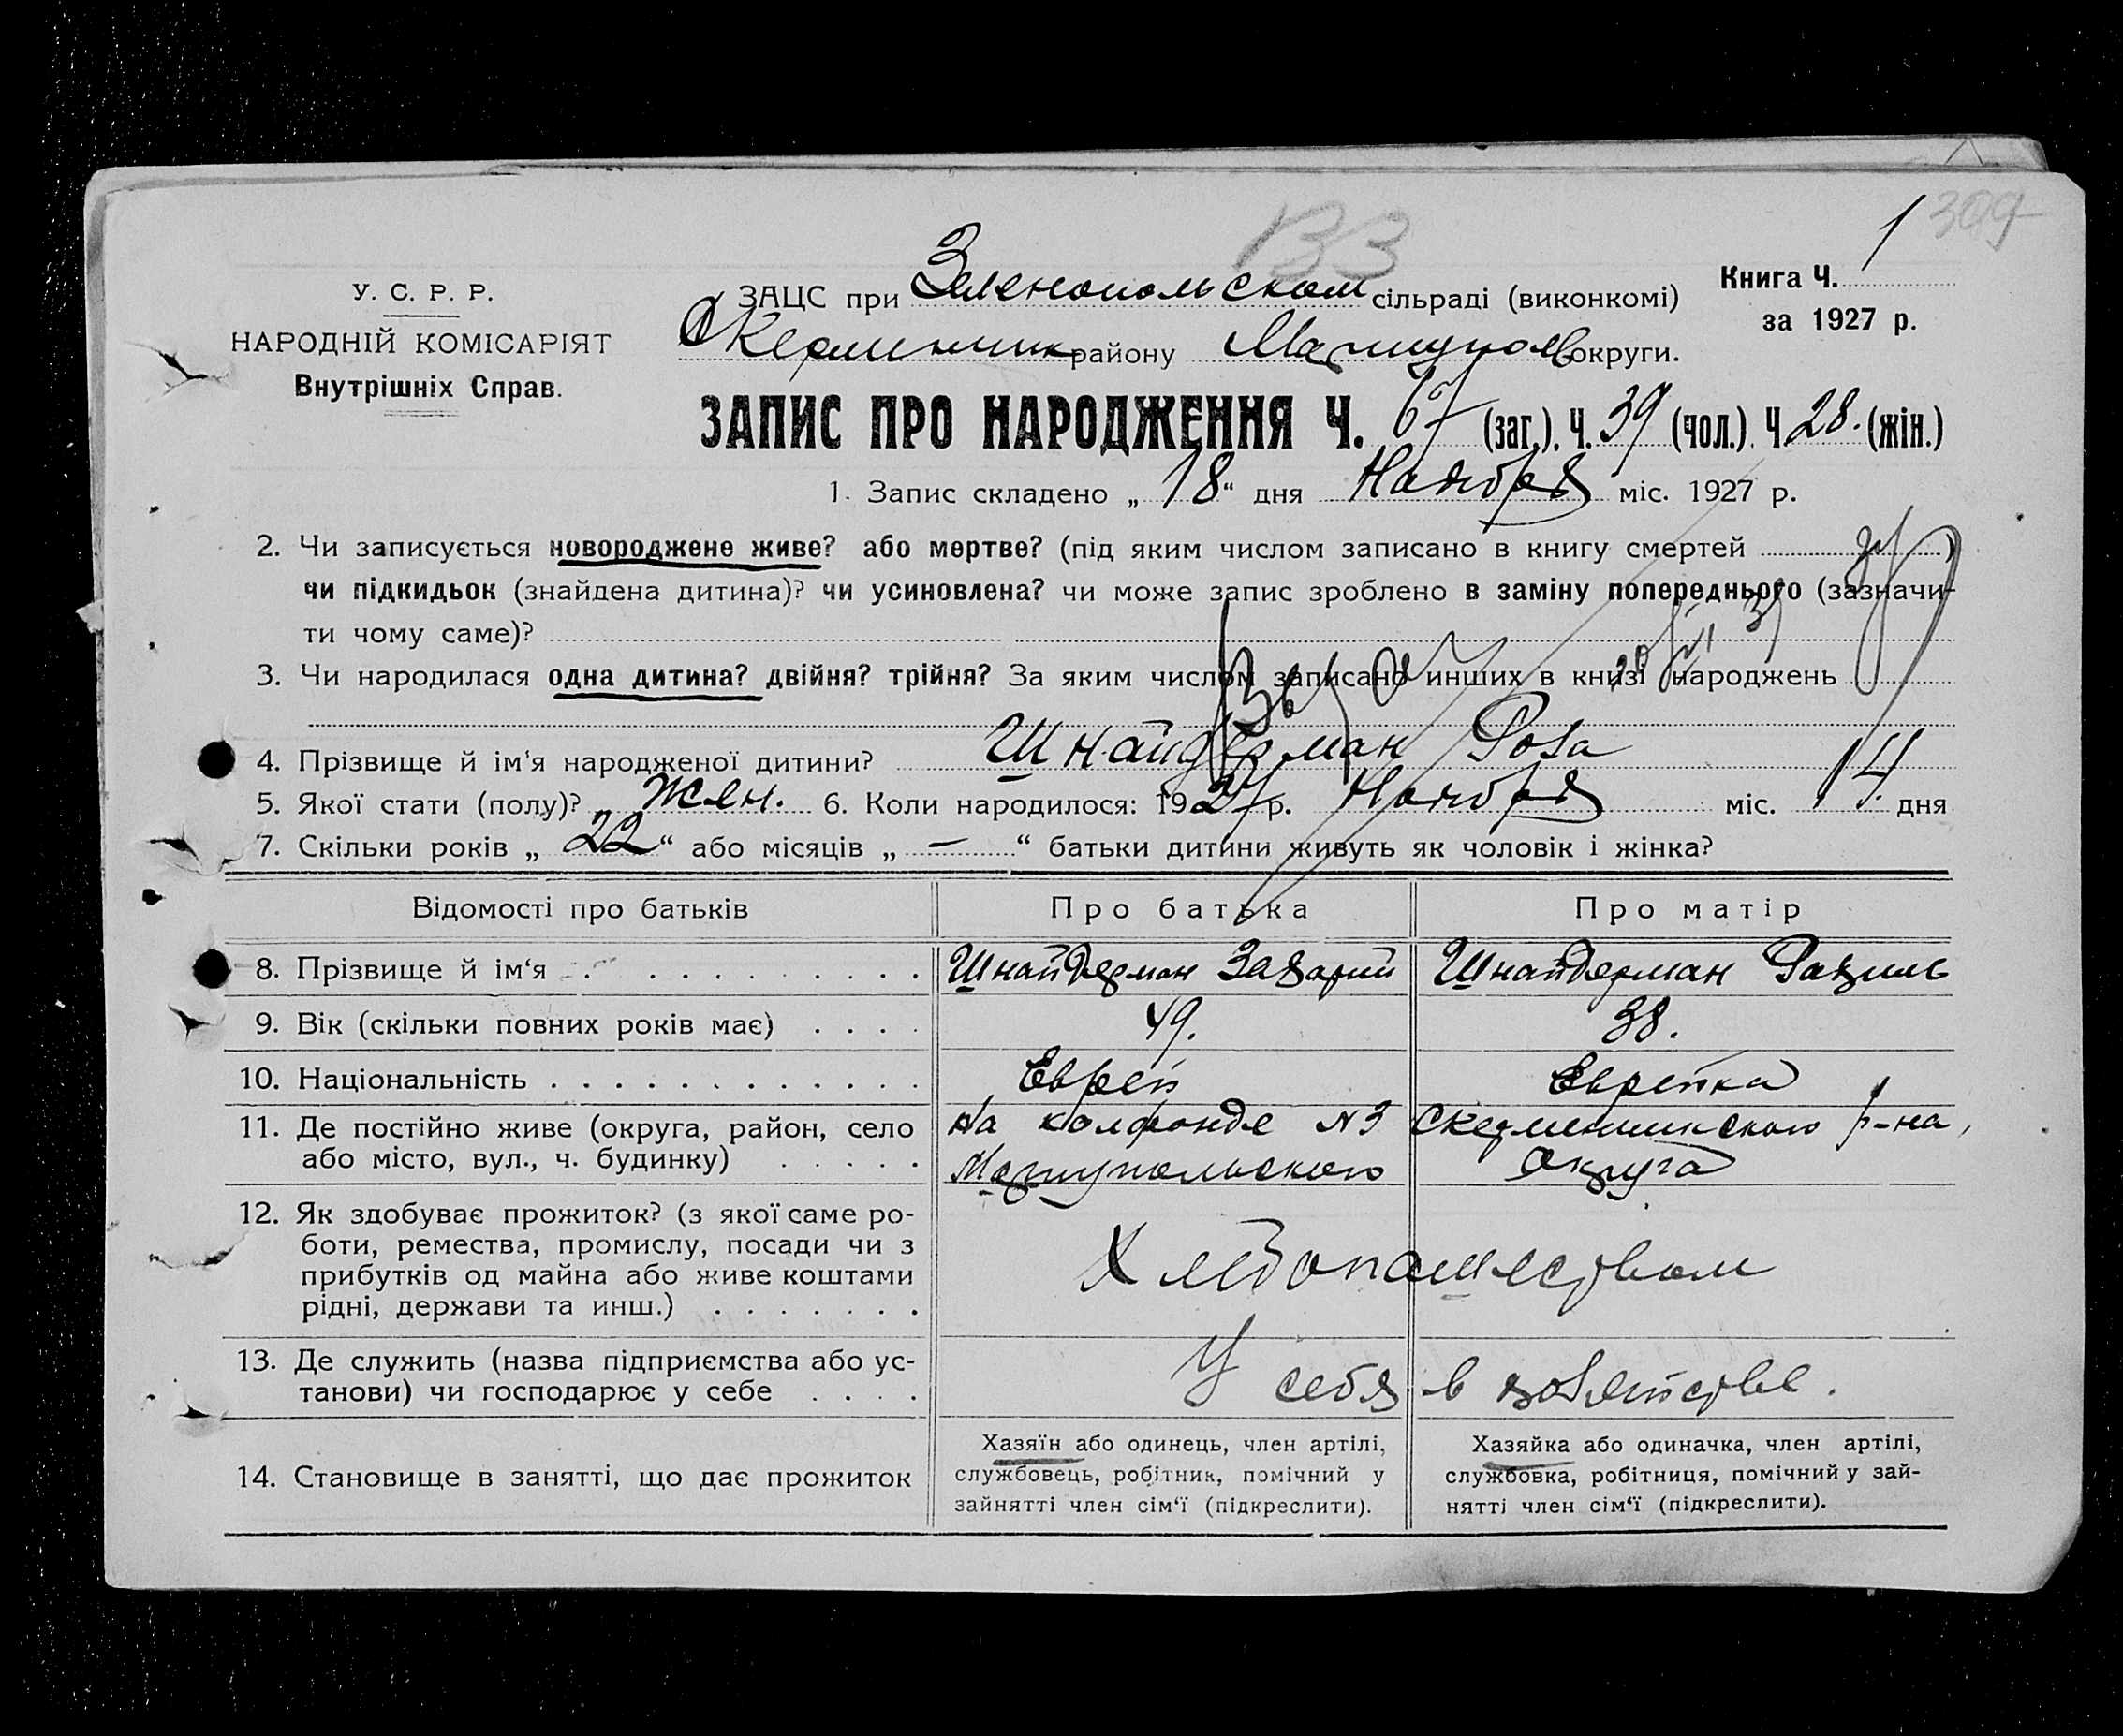 133
309
У. С. Р. Р.
НАРОДНІЙ КОМІСАРІЯТ
Внутрішніх Справ.
ЗАЦС при Зеленопольском сільраді (виконкомі)
району Мариупол округи.
Книга Ч. 1
за 1927 р.
ЗАПИС ПРО НАРОДЖЕННЯ Ч. 67 (заг.). Ч. 39 (чол.). Ч 28. (жін.)
1. Запис складено „ 18 “ дня Ноября міс. 1927 р.
2. Чи записується новороджене живе? або мертве? (під яким числом записано в книгу смертей )
чи підкидьок (знайдена дитина)? чи усиновлена? чи може запис зроблено в заміну попереднього (зазначи-
ти чому саме)?
3. Чи народилася одна дитина? двійня? трійня? За яким числом записано инших в книзі народжень
4. Прізвище й ім‘я народженої дитини? Шнайдерман Роза
5. Якої стати (полу)? Жен. 6. Коли народилося: 1927 р. Ноября міс. 14. дня
7. Скільки років „ 22 “ або місяців „ — “ батьки дитини живуть як чоловік і жінка?
Відомості про батьків Про батька Про матір
8. Прізвище й ім‘я Шнайдерман Захарий Шнайдерман Рахиль
9. Вік (скільки повних років має) 49. 38.
10. Національність Еврей Еврейка
11. Де постійно живе (округа, район, село На колфонде N3 р-на,
або місто, вул., ч. будинку) Мариупольского Округа
12. Як здобуває прожиток? (з якої саме ро-
боти, ремества, промислу, посади чи з
прибутків од майна або живе коштами
рідні, держави та инш.)
Хлебопашеством
13. Де служить (назва підприємства або ус-
танови) чи господарює у себе
У себя в хозяйстве.
14. Становище в занятті, що дає прожиток
Хазяїн або одинець, член артілі,
службовець, робітник, помічний у
зайнятті член сім‘ї (підкреслити).
Хазяйка або одиначка, член артілі,
службовка, робітниця, помічний у зай-
нятті член сім‘ї (підкреслити).